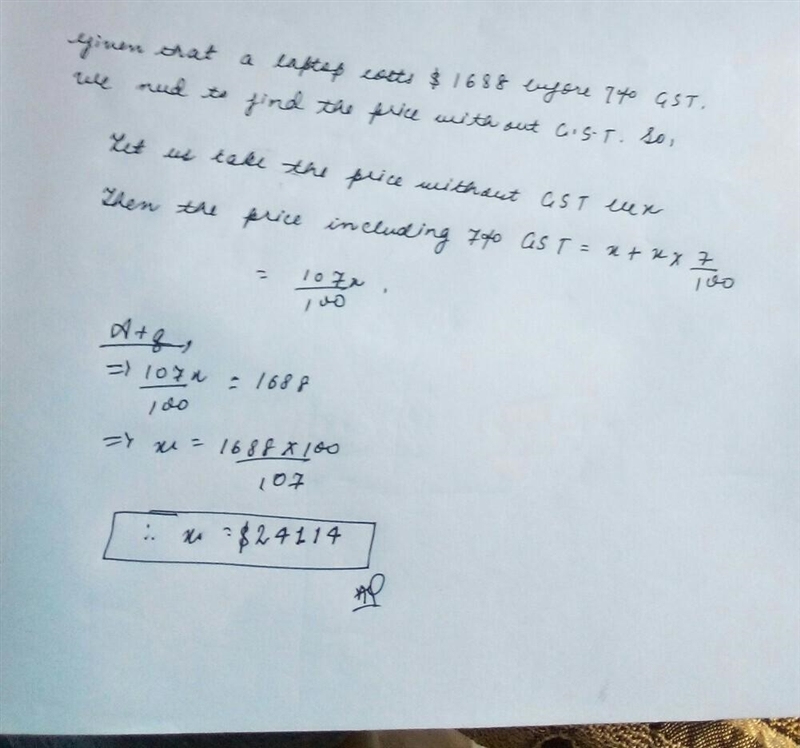 Given that a laptop costs $1688 before 7% GST.
We need to find the price without G.S.T. So,
Let us take the price without GST be x
Then the price including 7% GST = x + x × 7/100
= 107x/100.
A+q,
=> 107x/100 = 1688
=> x = 1688×100/107
∴ x = $24114